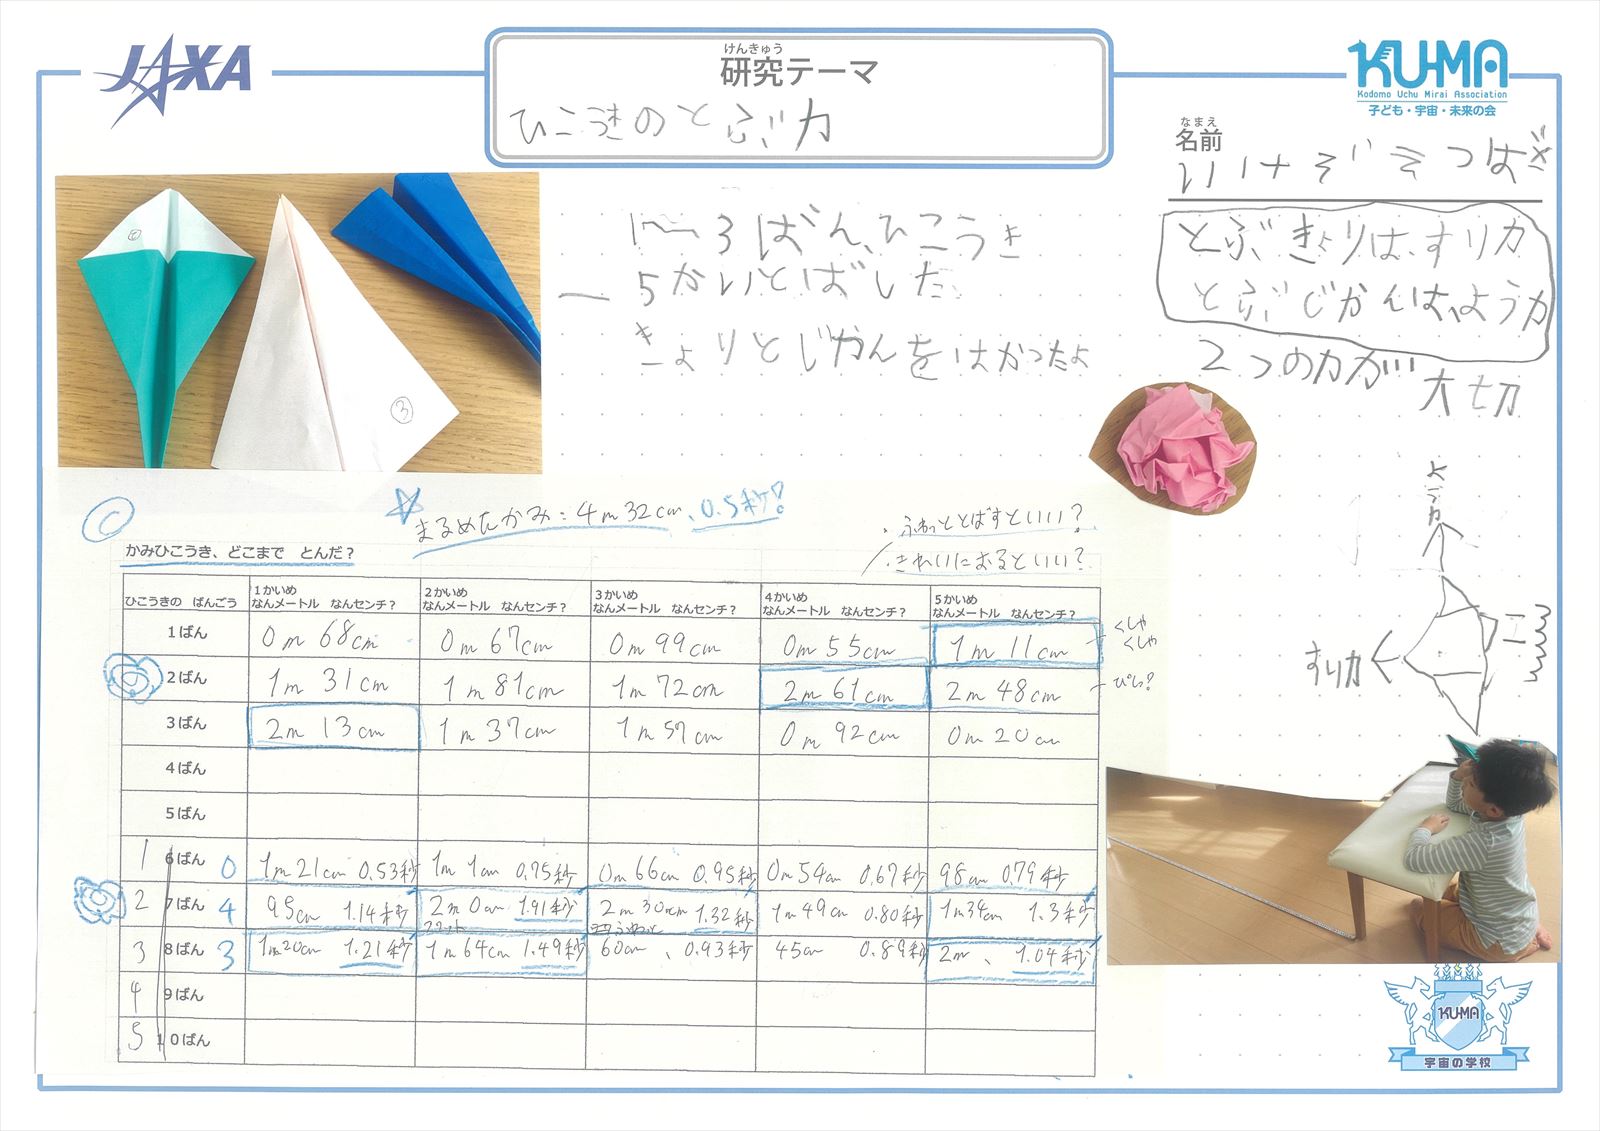 JAXA
けんきゅう
研究テーマ
ひこうきのとぶ力
KU-MA
Kodomo Uchu Mirai Association
子ども・宇宙・未来の会
なまえ
名前
1～3ばん、ひこうき
5かいとばした
きょりとじかんをはかったよ
とぶきょりは、すい力
とぶじかんは、よう力
2つの力が
大切
③
まるめたかみ:4m32cm、0.5秒!
・ふわっととばすといい?
・きれいにおるといい?
かみひこうき、どこまで とんだ?
ひこうきの ばんごう
1かいめ なんメートル なんセンチ?
2かいめ なんメートル なんセンチ?
3かいめ なんメートル なんセンチ?
4かいめ なんメートル なんセンチ?
5かいめ なんメートル なんセンチ?
1ばん 0m 68cm 0m 67cm 0m 99cm 0m 55cm 1m 11cm
くしゃ
くしゃ
2ばん 1m 31cm 1m 81cm 1m 72cm 2m 61cm 2m 48cm
ぴしっ?
3ばん 2m 13cm 1m 37cm 1m 57cm 0m 92cm 0m 20cm
4ばん
5ばん
1 6ばん 0 1m 21cm 0.53秒 1m 1cm 0.75秒 0m 66cm 0.95秒 0m 54cm 0.67秒 98cm 0.79秒
2 7ばん 4 95cm 1.14秒 2m 0cm 1.91秒 2m 30cm 1.32秒 1m 49cm 0.80秒 1m34cm 1.3秒
3 8ばん 3 1m20cm 1.21秒 1m 64cm 1.49秒 60cm、0.93秒 45cm 0.89秒 2m、1.04秒
4 9ばん
5 10ばん
よう力
すい力
KU-MA
宇宙の学校